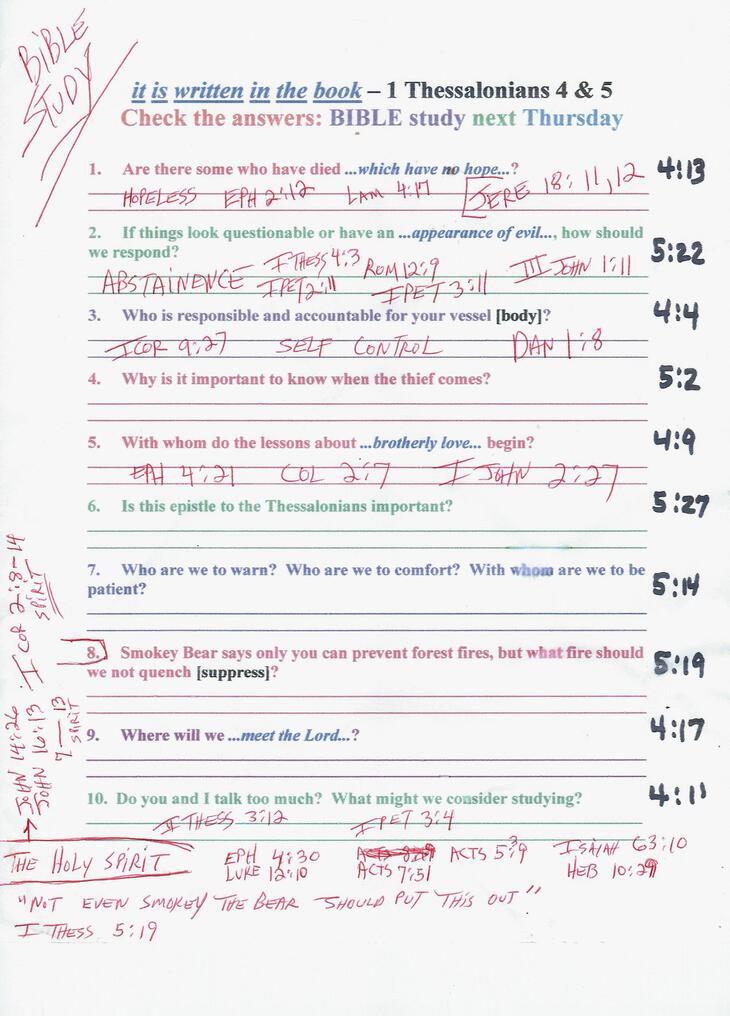 BIBLE
STUDY
it is written in the book – 1 Thessalonians 4 & 5
Check the answers: BIBLE study next Thursday
1. Are there some who have died ...which have no hope...? 4:13
HOPELESS EPH 2:12 LAM 4:17 [JERE 18:11,12
2. If things look questionable or have an ...appearance of evil..., how should
we respond? 5:22
I THESS 4:3 ROM 12:9 III JOHN 1:11
ABSTAINENCE I PET 2:11 I PET 3:11
3. Who is responsible and accountable for your vessel [body]? 4:4
I COR 9:27 SELF CONTROL DAN 1:8
4. Why is it important to know when the thief comes? 5:2
5. With whom do the lessons about ...brotherly love... begin? 4:9
EPH 4:21 COL 2:7 I JOHN 2:27
6. Is this epistle to the Thessalonians important? 5:27
7. Who are we to warn? Who are we to comfort? With whom are we to be
patient? 5:14
8. Smokey Bear says only you can prevent forest fires, but what fire should
we not quench [suppress]? 5:19
9. Where will we ...meet the Lord...? 4:17
10. Do you and I talk too much? What might we consider studying? 4:11
II THESS 3:12 I PET 3:4
JOHN 14:26 : I COR 2:8-14
SPIRIT
JOHN 16:13
7 — 13
SPIRIT
THE HOLY SPIRIT EPH 4:30 ACTS 5:3,9 ISAIAH 63:10
LUKE 12:10 ACTS 7:51 HEB 10:29
"NOT EVEN SMOKEY THE BEAR SHOULD PUT THIS OUT"
I THESS 5:19